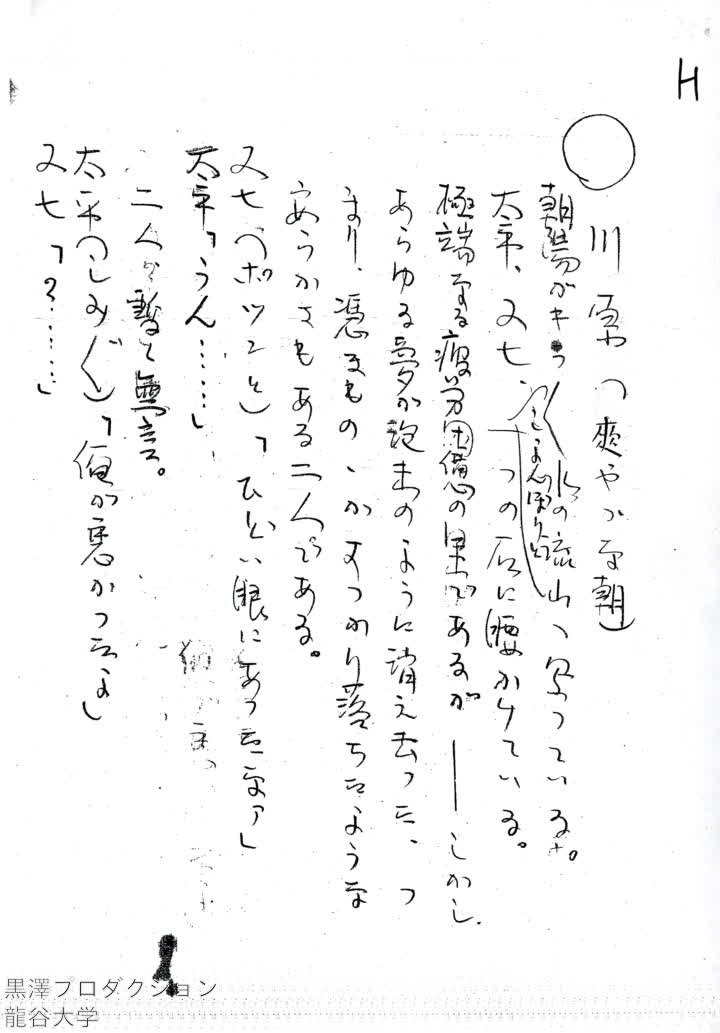 H
川原の爽やかな朝
朝陽がキラ〱水の流れに写っている。
太平、又七、しょんぼりと一つの石に腰かけている。
極端なる疲労困憊の果てであるが――しかし、
あらゆる夢が泡末のように消え去った、つ
まり、憑きものがすつかり落ちたような
安らかさもある二人である。
又七(ポツンと)「ひどい眼にあったなァ」
太平「うん……」
二人は暫く無言。
太平(しみ〲)「俺が悪かったよ」
又七「?……」
黒澤プロダクション
龍谷大学